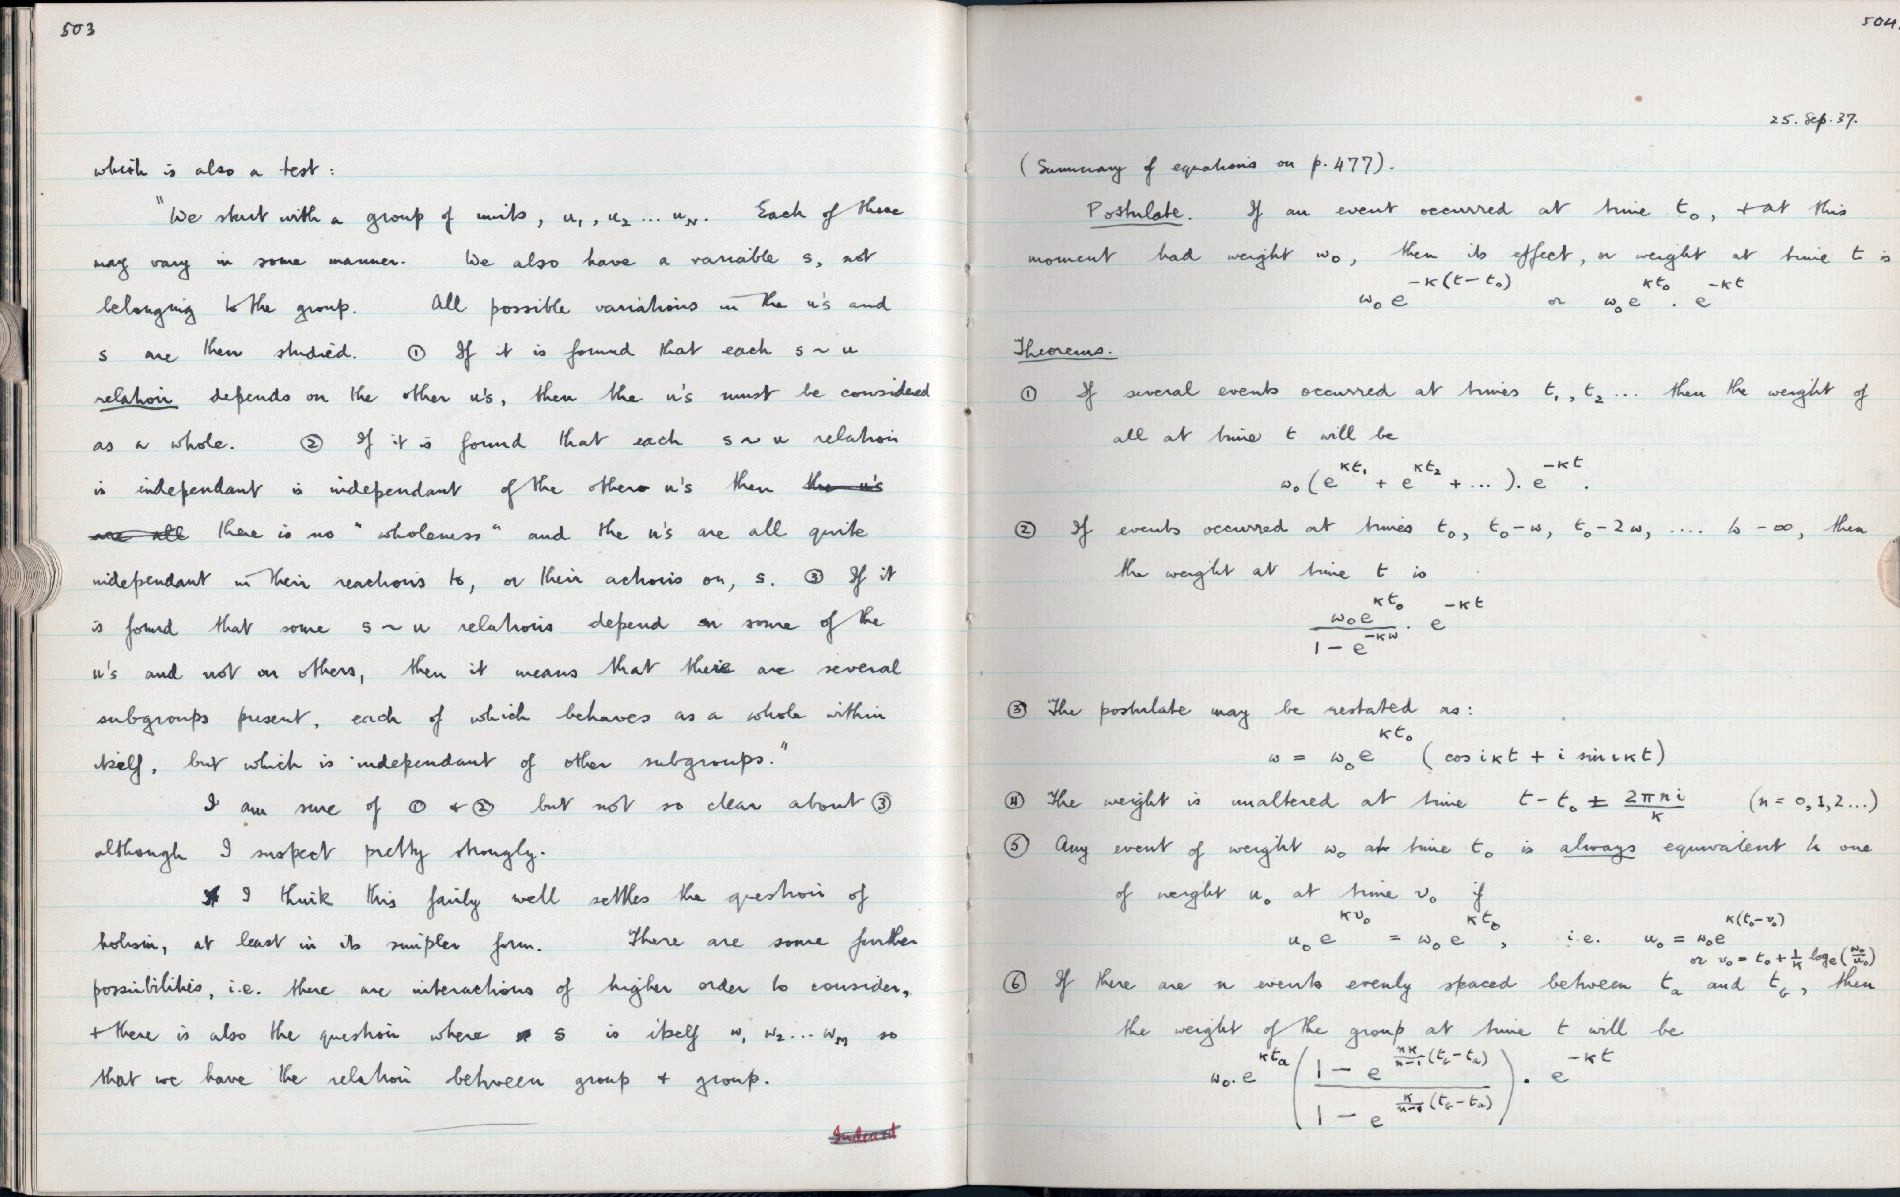 503
which is also a test:
"We start with a group of units, u₁, u₂ ... u_N. Each of these
may vary in some manner. We also have a variable s, not
belonging to the group. All possible variations in the u's and
s are then studied. ① If it is found that each s ~ u
relation depends on the other u's, then the u's must be considered
as a whole. ② If it is found that each s ~ u relation
is independant is independant of the other u's then the u's
are all there is no "wholeness" and the u's are all quite
independant in their reactions to, or their actions on, s. ③ If it
is found that some s ~ u relations depend on some of the
u's and not on others, then it means that there are several
subgroups present, each of which behaves as a whole within
itself, but which is independant of other subgroups."
I am sure of ① + ② but not so clear about ③
although I suspect pretty strongly.
I think this fairly well settles the question of
holism, at least in its simpler form. There are some further
possibilities, i.e. there are interactions of higher order to consider,
+ there is also the question where s is itself w₁ w₂ ... w_M so
that we have the relation between group + group.
Indexed
504.
25. Sep. 37.
(Summary of equations on p. 477).
Postulate. If an event occurred at time t₀, + at this
moment had weight w₀, then its effect, or weight at time t is
w₀ e^{-κ(t-t₀)} or w₀ e^{κt₀} . e^{-κt}
Theorems.
① If several events occurred at times t₁, t₂ ... then the weight of
all at time t will be
w₀ (e^{κt₁} + e^{κt₂} + ... ). e^{-κt} .
② If events occurred at times t₀, t₀-w, t₀-2w, .... to -∞, then
the weight at time t is
\frac{w₀ e^{κt₀}}{1 - e^{-κw}} . e^{-κt}
③ The postulate may be restated as:
w = w₀ e^{κt₀} (cos iκt + i sin iκt)
④ The weight is unaltered at time t - t₀ ± \frac{2πni}{κ} (n = 0, 1, 2 ...)
⑤ Any event of weight w₀ at time t₀ is always equivalent to one
of weight u₀ at time v₀ if
u₀ e^{κv₀} = w₀ e^{κt₀}, i.e. u₀ = w₀ e^{κ(t₀-v₀)}
or v₀ = t₀ + \frac{1}{κ} log_e (\frac{w₀}{u₀})
⑥ If there are n events evenly spaced between t_a and t_b, then
the weight of the group at time t will be
w₀. e^{κt_a} ( \frac{1 - e^{\frac{nκ}{n-1}(t_b-t_a)}}{1 - e^{\frac{κ}{n-1}(t_b-t_a)}} ) . e^{-κt}